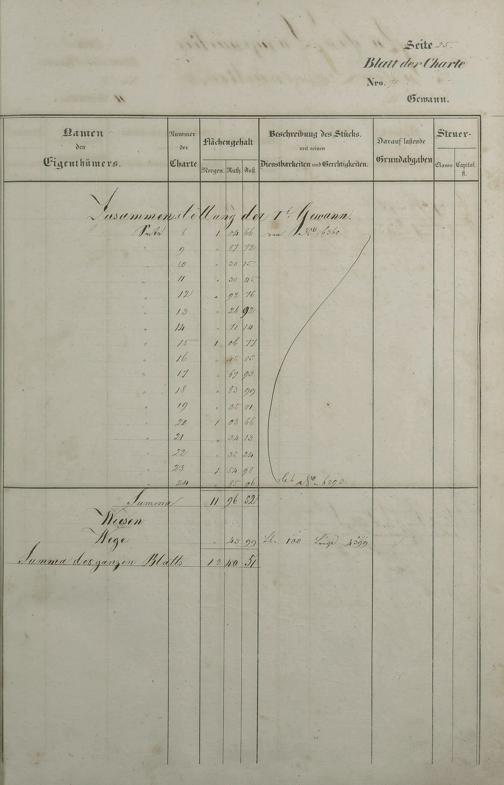 Seite 25.
Blatt der Charte
Nro.
Gewann.
Namen des Eigenthümers.
Nummer der Charte
Flächengehalt
Morgen. Ruth. Fuß.
Beschreibung des Stücks. mit seinen Dienstbarkeiten und Gerechtigkeiten.
Darauf lastende Grundabgaben
Steuer-
Classe Capital. fl.
Zusammenstellung der 1t Gewann.
Seite 8 1 04 66 von No 6360
" 9 " 87 72
" 10 " 30 15
" 11 " 30 45
" 12 " 92 76
" 13 " 26 92
" 14 " 71 14
" 15 1 06 77
" 16
" 17 " 67 93
" 18 " 83 99
" 19
" 20 1 03 66
" 21 " 34 13
" 22 " 36 24
" 23 1 54 98
" 24 bis No
Summa 11 96 52
Wege " 43 99 100 Länge 4399
Summa des ganzen Blatts 12 40 51